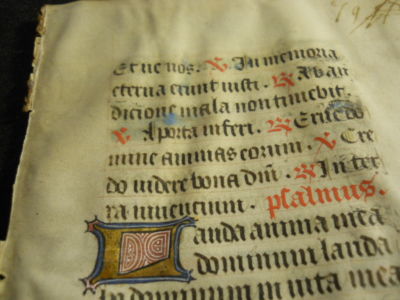 Et ne nos. ℣ In memoria
eterna erunt iusti. ℟ Ab au
dicione mala non timebit.
℣ A porta inferi. ℟ Erue do
mine animas eorum. ℣ Cre
do videre bona dñi. ℟ In ter
ra viventium. psalmus.
Lauda anima mea
dominum lauda
dominum in vita mea